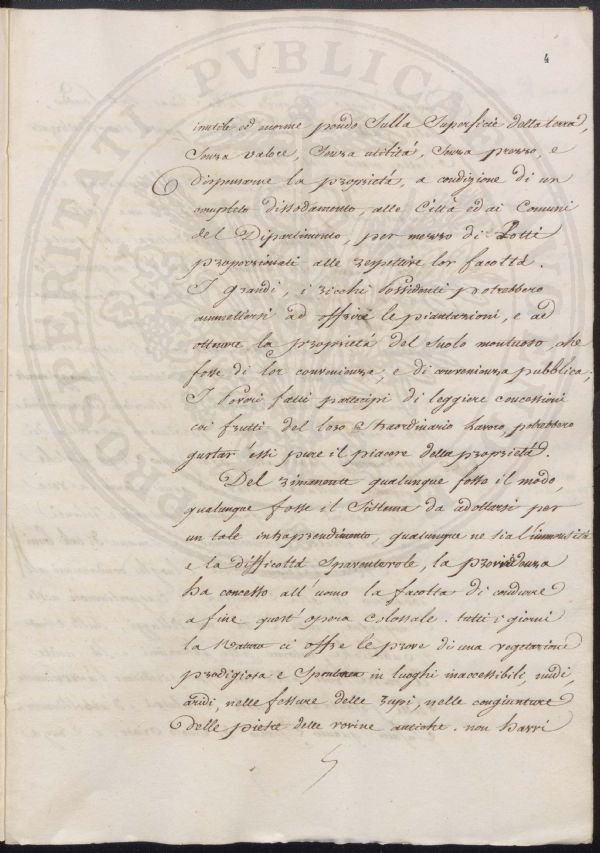 4
inutile ed enorme pondo sulla Superficie della terra,
Senza valore, Senza utilità, Senza prezzo, e
dispensarne la proprietà, a condizione di un
completo dissodamento, alle Città ed ai Comuni
del Dipartimento, per mezzo di Lotti
proporzionati alle respettive lor facoltà.
I grandi, i ricchi Possidenti potrebbero
ammettersi ad offrire le piantazioni, e ad
ottenere la proprietà del Suolo montuoso che
fosse di lor convenienza, e di convenienza pubblica;
I Poveri fatti partecipi di leggiere concessioni
coi frutti del loro Straordinario lavoro, potrebbero
gustar essi pure il piacere della proprietà.
Del rimanente qualunque fosse il modo,
qualunque fosse il Sistema da adottarsi per
un tale intraprendimento, qualunque ne sia l'immensità
e la difficoltà Spaventevole, la providenza
ha concesso all'uomo la facoltà di condurre
a fine quest'opera colossale. tutti i giorni
la Natura ci offre le prove di una vegetazione
prodigiosa e Spontanea in luoghi inaccessibili, nudi,
aridi, nelle fessure delle rupi, nelle congiunture
delle pietre delle rovine antiche. non havvi
PROSPERITATI PVBLICAE